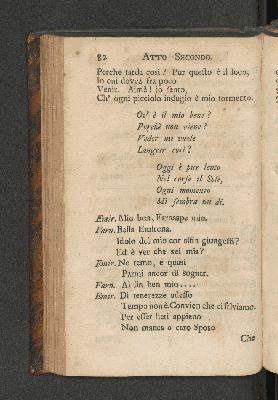 82 ATTO SECONDO.
Perche tarda così? Pur questo è il loco,
In cui dovea fra poco
Venir. Aimè! io sento,
Ch' ogni picciolo indugio è mio tormento.
Ov' è il mio bene?
Perchè non viene?
Veder mi vuole
Languir così?
Oggi è pur lento
Nel corso il Sole,
Ogni momento
Mi sembra un dì.
Emir. Mio ben, Farnaspe mio.
Farn. Bella Emirena,
Idolo del mio cor alfin giungesti?
Ed è ver che sei mia?
Emir. Ne temo, e quasi
Parmi ancor di sognar.
Farn. Al fin ben mio ....
Emir. Di tenerezze adesso
Tempo non è. Convien che ci salviamo.
Per esser lieti appieno
Non manca o caro Sposo
Che